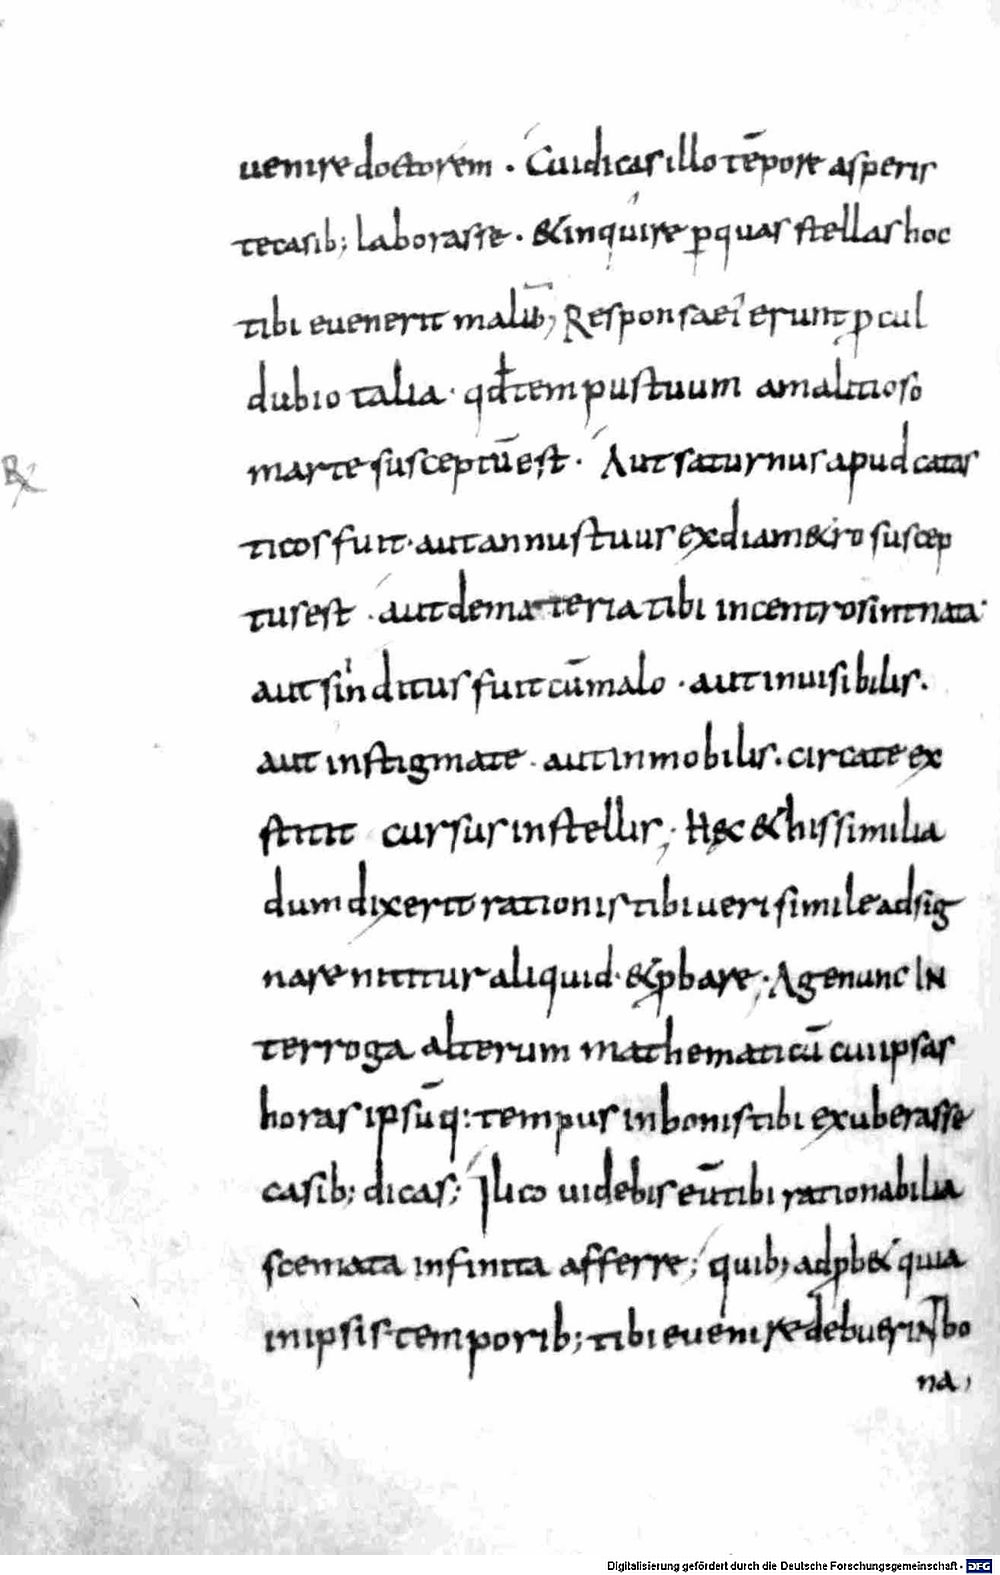 uenire doctorem · Cui dicas illo tēpore asperis
te casib; laborasse · & inquire p quas stellas hoc
tibi euenerit malū; Responsa ei erunt p cul
dubio talia · qđ tempus tuum a malitioso
marte susceptū est · Aut saturnus apud catas
ticos fuit · aut annus tuus ex diam&ro suscep
tus est · aut de materia tibi in centro sint nata
aut sin ditus fuit cū malo · aut inuisibilis ·
aut in stigmate · aut inmobilis · circa te ex
stitit cursus in stellis; Hęc & his similia
dum dixerit rationis tibi ueri simile adsig
nare nititur aliquid · & pbare; Age nunc IN
terroga alterum mathematicū cui ipsas
horas ipsūq: tempus in bonis tibi exuberasse
casib; dicas; Ilico uidebis eū tibi rationabilia
scemata infinita afferre; quib; ad pb& quia
in ipsis temporib; tibi euenire debuerint bo
na;
Digitalisierung gefördert durch die Deutsche Forschungsgemeinschaft - DFG